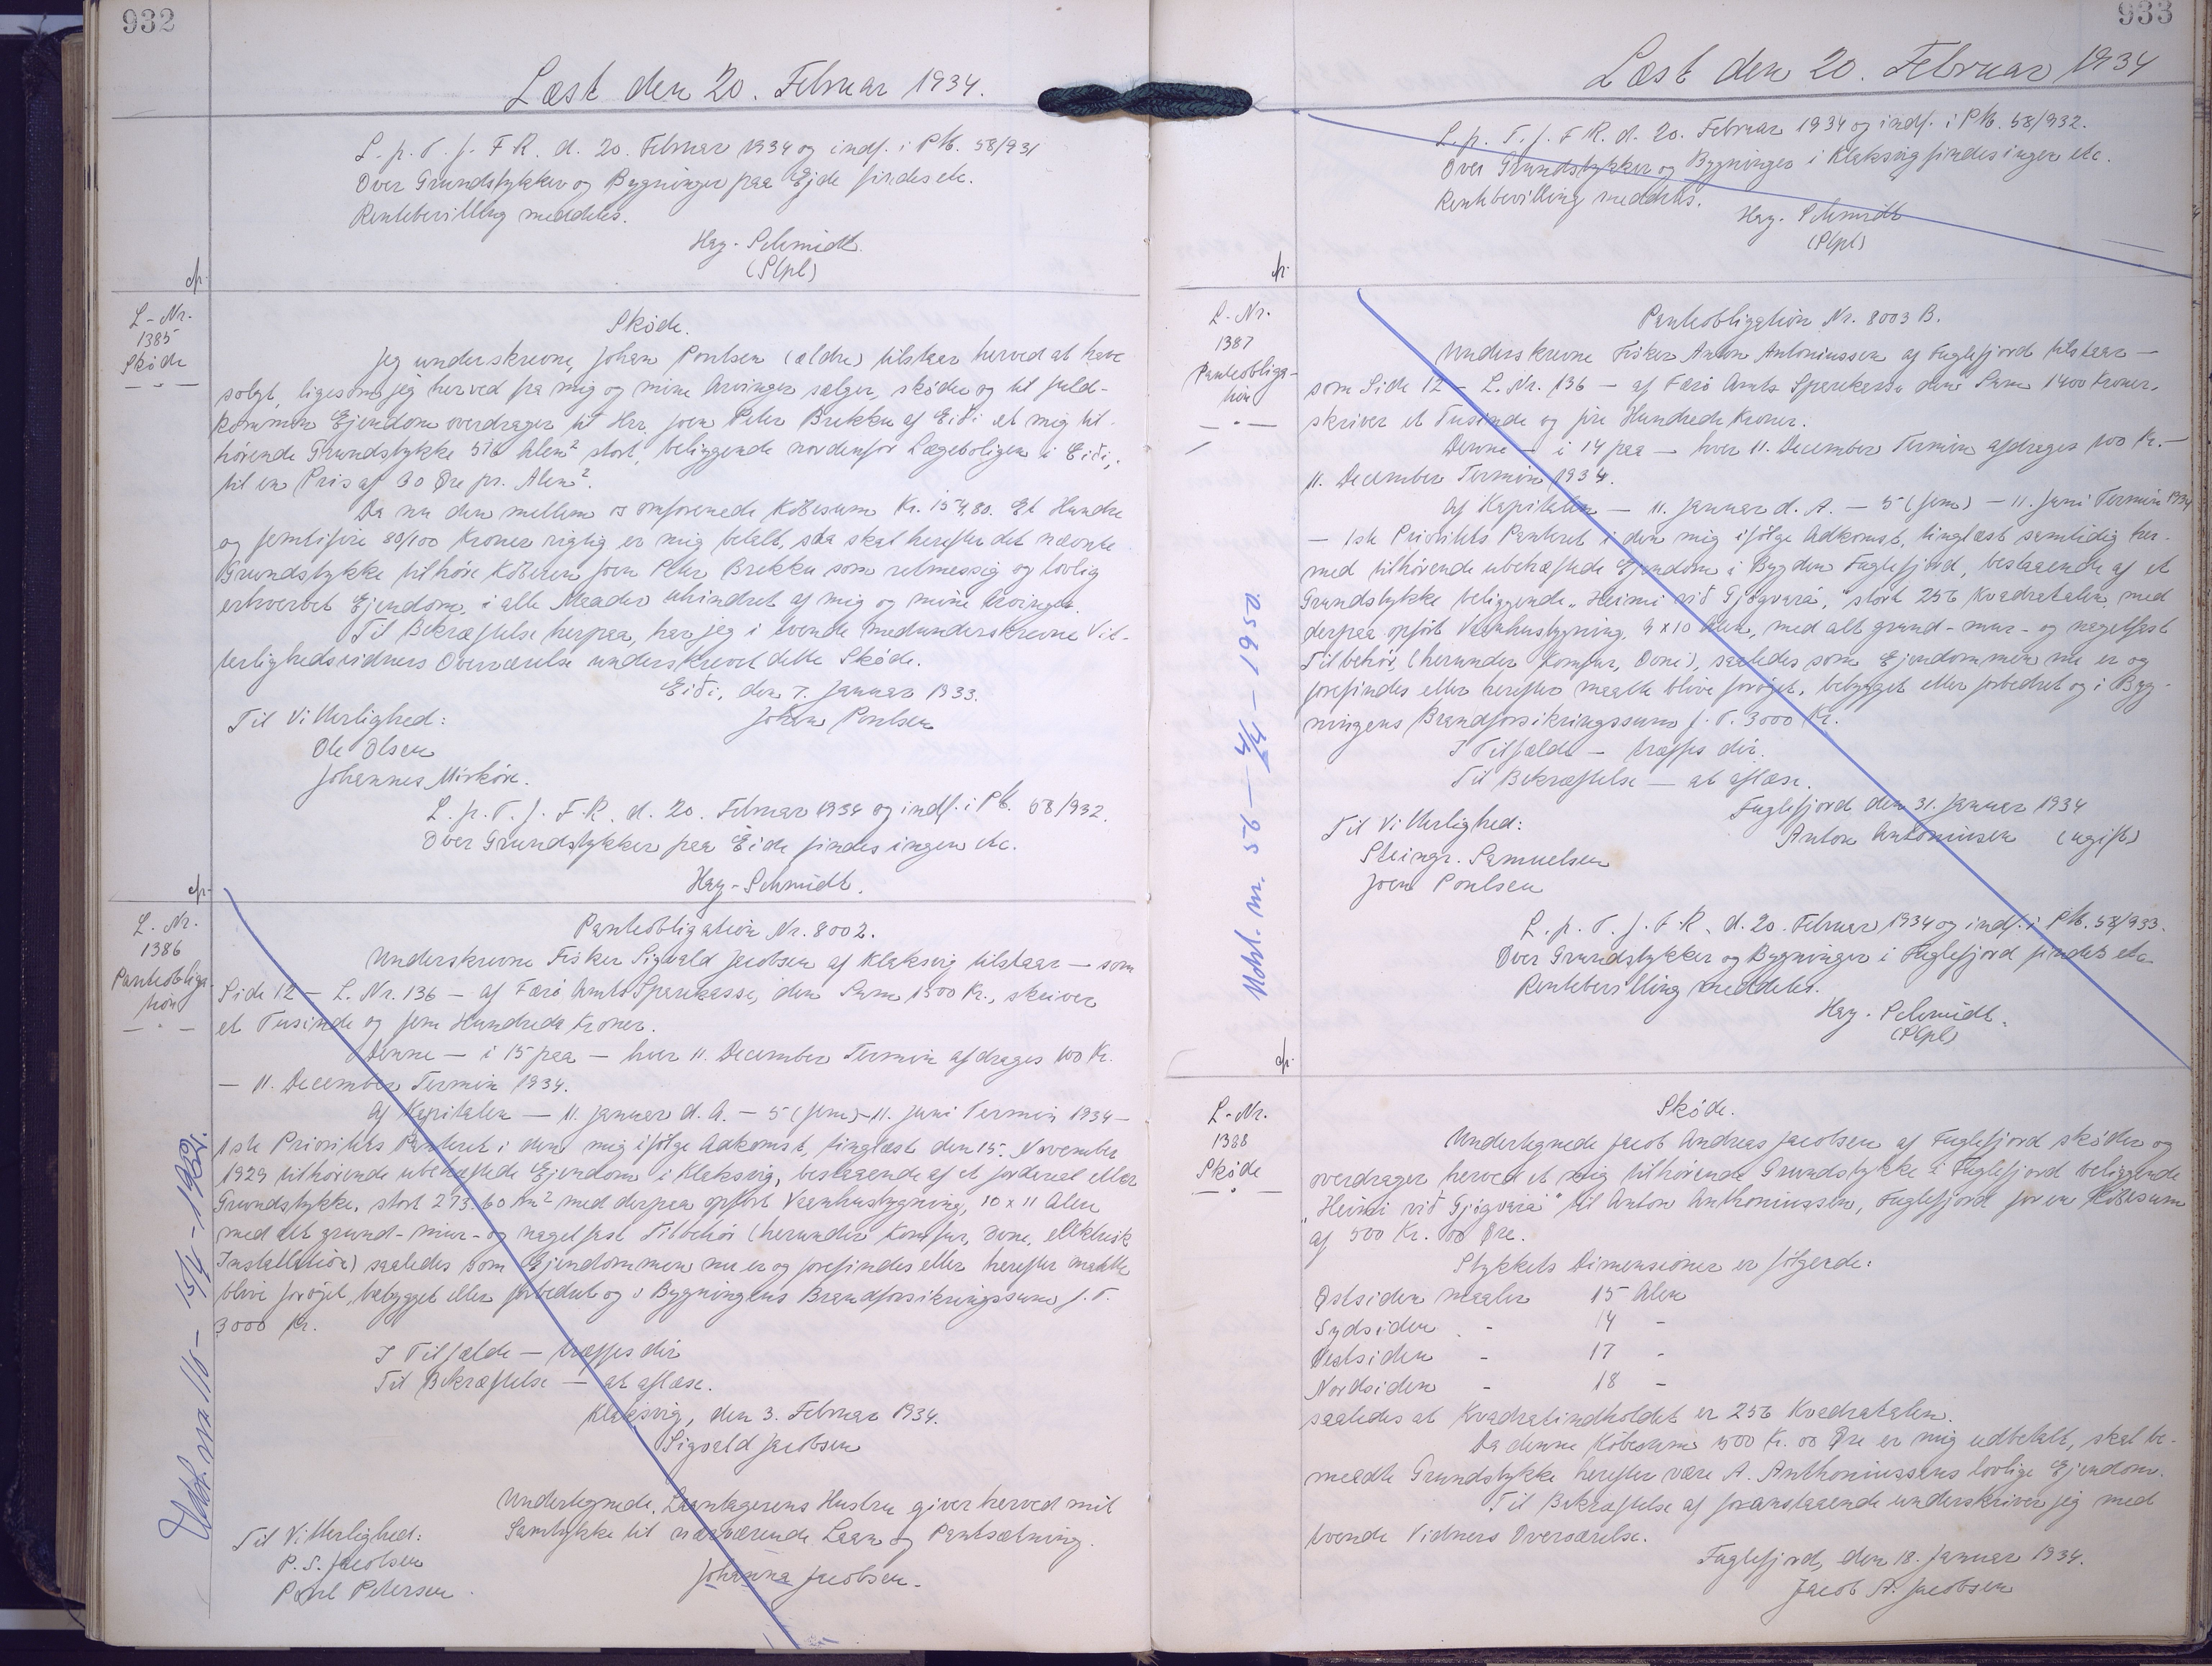 932
Læst den 20. Februar 1934.
L. p. T. f. F. R. d. 20. Februar 1934 og indf. i Ptb. 58/931
Over Grundstykker og Bygninger paa Ejde findes etc.
Rentebevilling meddeles.
Hay-Schmidt
(Plpl)
L-Nr.
1385
Skøde
Skøde.
Jeg underskrevne, Johan Poulsen (ældre) tilstaar herved at have
solgt, ligesom jeg herved fra mig og mine Arvinger sælger, skøder og til fuld-
kommen Ejendom overdrager til Hr. Joen Peter Brekku af Eiði et mig til-
hørende Grundstykke 516 Alen² stort, beliggende nordenfor Lægeboligen i Eiði,
til en Pris af 30 Øre pr. Alen².
Da nu den mellem os omforenede Købesum Kr. 154,80. Et Hundre
og femtifire 80/100 Kroner rigtig er mig betalt, saa skal herefter det nævnte
Grundstykke tilhøre Køberen Joen Peter Brekku som retmessig og lovlig
erhvervet Ejendom, i alle Maader uhindret af mig og mine Arvinger.
Til Bekræftelse herpaa, har jeg i tvende medunderskrevne Vit-
terlighedsvidners Overværelse underskrevet dette Skøde.
Eiði, den 7. Januar 1933.
Til Vitterlighed: Johan Poulsen
Ole Olsen
Johannes Mörköre.
L. p. T. f. F. R. d. 20. Februar 1934 og indf. i Ptb. 58/932.
Over Grundstykker paa Eide findes ingen etc.
Hay-Schmidt.
L. Nr.
1386
Panteobliga-
tion
Panteobligation Nr. 8002.
Underskrevne Fisker Sigvald Jacobsen af Klaksvig tilstaar — som
Side 12 — L. Nr. 136 — af Færø Amts Sparekasse, den Sum 1500 Kr., skriver
et Tusinde og fem Hundrede Kroner.
Denne — i 15 paa — hver 11. December Termin afdrages 100 Kr.
— 11. December Termin 1934.
Af Kapitalen — 11. Januar d. A. — 5 (fem) — 11. Juni Termin 1934 —
1ste Prioritets Panteret i den mig ifølge Adkomst, tinglæst den 15. November
1929 tilhørende ubehæftede Ejendom i Klaksvig, bestaaende af et Jordareal eller
Grundstykke, stort 273.60 m² med derpaa opført Vaanhusbygning, 10 x 11 Alen
med alt grund- mur- og nagelfast Tilbehör (herunder Komfur, Ovne, elektrisk
Installation) saaledes som Ejendommen nu er og forefindes eller herefter maatte
blive forøget, bebygget eller forbedret og i Bygningens Brandforsikringssum f. T.
3000 Kr.
I Tilfælde — træffes dér
Til Bekræftelse — at aflæse.
Klaksvig, den 3. Februar 1934.
Sigvald Jacobsen
Undertegnede, Laantagerens Hustru giver herved mit
Samtykke til nærværende Laan og Pantsætning.
Til Vitterlighed:
P. S. Jacobsen
Poul Petersen
Johanna Jacobsen.
933
Læst den 20. Februar 1934
L. p. T. f. F. R. d. 20. Februar 1934 og indf. i Ptb. 58/932.
Over Grundstykker og Bygninger i Klaksvig findes ingen etc.
Rentebevilling meddeles.
Hay-Schmidt
(Plpl)
L. Nr.
1387
Panteobliga-
tion
Udsl. nr. 56 — 4/4 — 1950.
Panteobligation Nr. 8003 B.
Underskrevne Fisker Anton Antoniussen af Fuglefjord tilstaar —
som Side 12 — L. Nr. 136 — af Færö Amts Sparekasse den Sum 1400 Kroner,
skriver et Tusinde og fire Hundrede Kroner.
Denne — i 14 paa — hver 11. December Termin afdrages 100 Kr. —
11. December Termin 1934.
Af Kapitalen — 11. Januar d. A. — 5 (fem) — 11. Juni Termin 1934
— 1ste Prioritets Panteret i den mig ifölge Adkomst, tinglæst samtidig her-
med tilhörende ubehæftede Ejendom i Bygden Fuglefjord, bestaaende af et
Grundstykke beliggende "Heimi við Gjógvará," stort 256 Kvadratalen, med
derpaa opfört Vaanhusbygning, 9 x 10 Alen, med alt grund- mur- og nagelfast
Tilbehör, (herunder Komfur, Ovne), saaledes som Ejendommen nu er og
forefindes eller herefter maatte blive forøget, bebygget eller forbedret og i Byg-
ningens Brandforsikringssum f. T. 3000 Kr.
I Tilfælde — træffes dér.
Til Bekræftelse — at aflæse.
Fuglefjord den 31. Januar 1934
Til Vitterlighed: Anton Antoniussen (ugift)
Steingr. Samuelsen
Joen Poulsen
L. p. T. f. F. R. d. 20. Februar 1934 og indf. i Ptb. 58/933.
Over Grundstykker og Bygninger i Fuglefjord findes etc.
Rentebevilling meddeles.
Hay-Schmidt.
(Plpl)
L-Nr.
1388
Skøde
Skøde.
Undertegnede Jacob Andreas Jacobsen af Fuglefjord skøder og
overdrager herved et mig tilhörende Grundstykke i Fuglefjord beliggende
"Heimi við Gjógvará" til Anton Anthoniussen, Fuglefjord for en Købesum
af 500 Kr. 00 Øre.
Stykkets Dimensioner er fölgende:
Østsiden maaler 15 Alen
Sydsiden - 14 -
Vestsiden - 17 -
Nordsiden - 18 -
saaledes at Kvadratindholdet er 256 Kvadratalen.
Da denne Købesum 500 Kr. 00 Øre er mig udbetalt, skal be-
meldte Grundstykke herefter være A. Anthoniussens lovlige Ejendom.
Til Bekræftelse af foranstaaende underskriver jeg med
tvende Vidners Overværelse.
Fuglefjord, den 18. Januar 1934.
Jacob A. Jacobsen